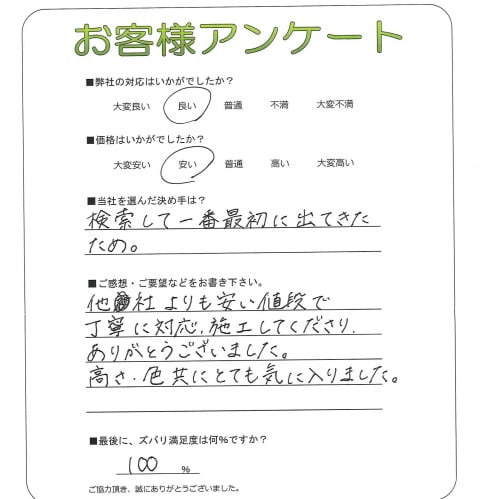 お客様アンケート
■弊社の対応はいかがでしたか？
大変良い　良い　普通　不満　大変不満
■価格はいかがでしたか？
大変安い　安い　普通　高い　大変高い
■当社を選んだ決め手は？
検索して一番最初に出てきた
ため。
■ご感想・ご要望などをお書き下さい。
他社よりも安い値段で
丁寧に対応、施工してくださり、
ありがとうございました。
高さ、色共にとても気に入りました。
■最後に、ズバリ満足度は何%ですか？
100 %
ご協力頂き、誠にありがとうございました。